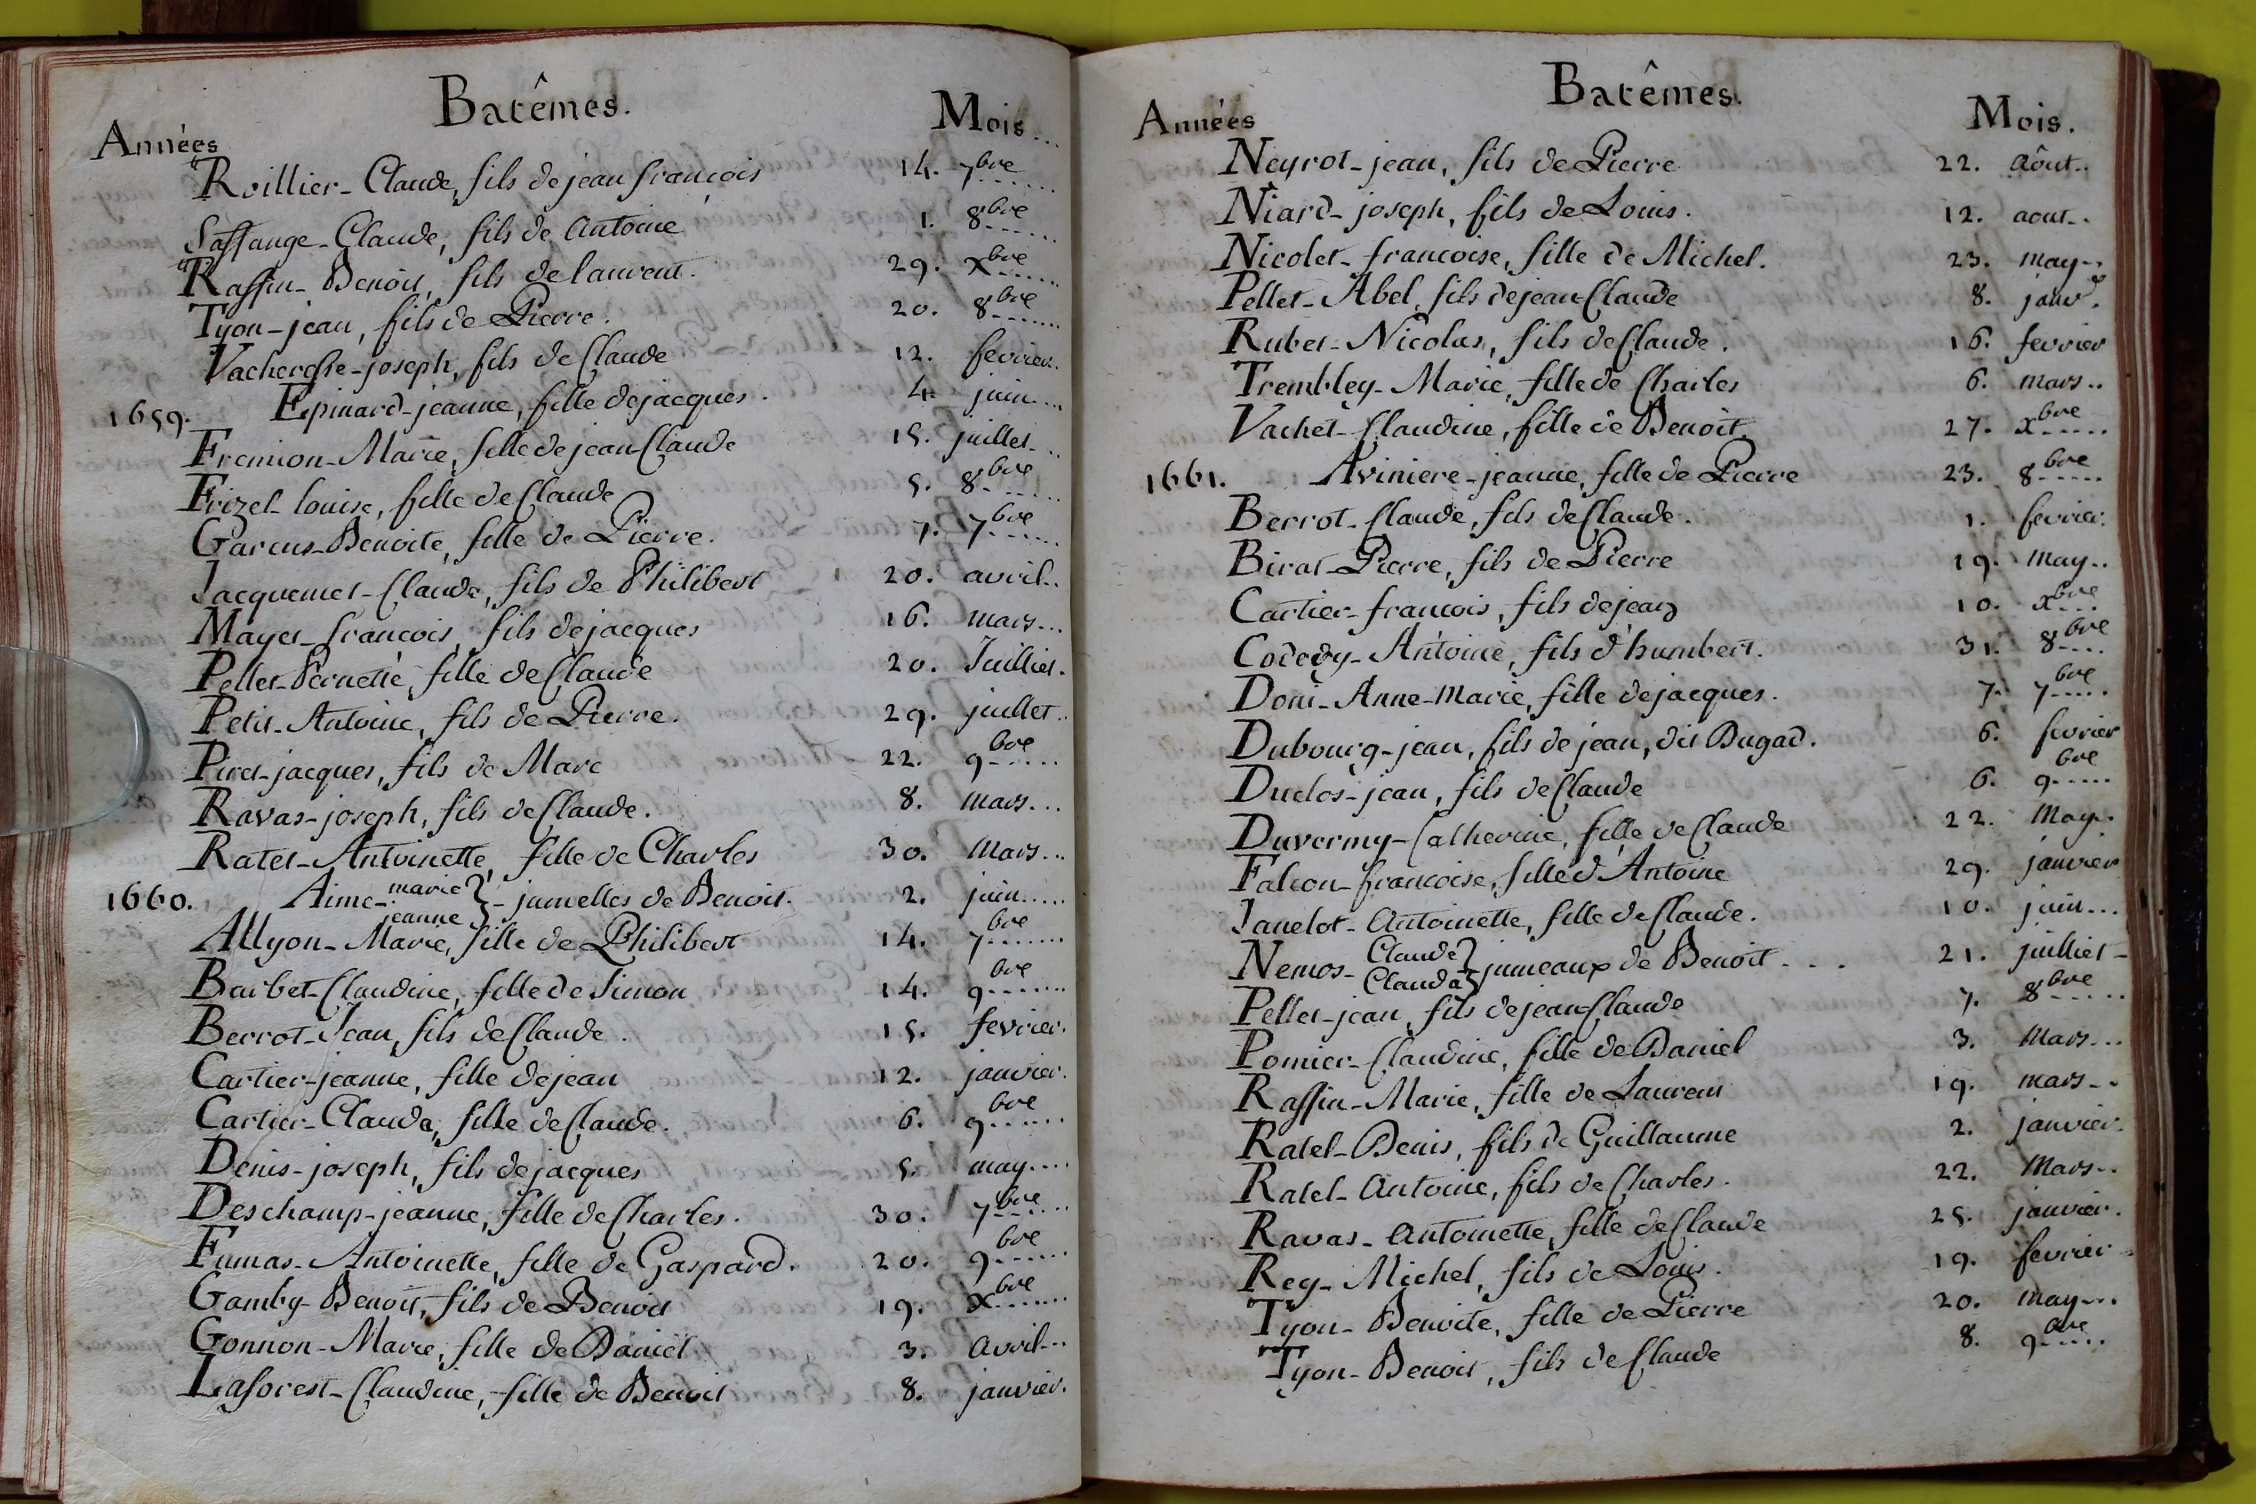 Batêmes.
Années Mois...
Roillier-Claude, fils de jean françois 14. 7bre
Saffange-Claude, fils de Antoine 1. 8bre
Raffin-Benoit, fils de laurent. 29. xbre
Tyon-jean, fils de Pierre. 20. 8bre
Vacheresse-joseph, fils de Claude 12. fevrier.
1659. Epinard-jeanne, fille de jacques. 4. juin...
Fremion-Marie, fille de jean Claude 15. juillet.
Frizel-louise, fille de Claude 5. 8bre
Garcus-Benoite, fille de Pierre. 7. 7bre
Jacquemet-Claude, fils de Philibert 20. avril..
Mayet-francois, fils de jacques 16. mars...
Pellet-Pernette, fille de Claude 20. Juilliet.
Petit-Antoine, fils de Pierre. 29. juillet..
Piret-jacques, fils de Marc 22. 9bre
Ravas-joseph, fils de Claude. 8. mars...
Ratet-Antoinette, fille de Charles 30. Mars...
1660. Aimé- marie jeanne } - jumelles de Benoit. 2. juin.....
Allyon-Marie, fille de Philibert 14. 7bre
Barbet-Claudine, fille de Simon 14. 9bre
Berrot-Jean, fils de Claude. 15. fevrier.
Cartier-jeanne, fille de jean 12. janvier.
Cartier-Claude, fille de Claude. 6. 9bre
Denis-joseph, fils de jacques 5. may....
Deschamp-jeanne, fille de Charles. 30. 7bre
Fumas-Antoinette, fille de Gaspard. 20. 9bre
Gamby-Benoit, fils de Benoit 19. xbre
Gonnon-Marie, fille de Daniel 3. avril...
Laforest-Claudine, fille de Benoit 8. janvier.
Batêmes.
Années Mois.
Neyrot-jean, fils de Pierre 22. Aôut..
Niard-joseph, fils de Louis. 12. aout..
Nicolet-francoise, fille de Michel. 23. may...
Pellet-Abel, fils de jean Claude 8. janvr.
Rubet-Nicolas, fils de Claude. 16. fevrier
Trembley-Marie, fille de Charles 6. mars..
Vachet-Claudine, fille de Benoit. 27. xbre
1661. Aviniere-jeanne, fille de Pierre 23. 8bre
Berrot-Claude, fils de Claude. 1. fevrier.
Birat-Pierre, fils de Pierre 19. may..
Cartier-francois, fils de jean 10. xbre
Codedy-Antoine, fils d'humbert. 31. 8bre
Doni-Anne-Marie, fille de jacques. 7. 7bre
Dubourg-jean, fils de jean, dit Bugad. 6. fevrier
Duclos-jean, fils de Claude 6. 9bre
Duvermy-Catherine, fille de Claude 22. May..
Falcon-francoise, fille d'Antoine 29. janvier
Janelot-Antoinette, fille de Claude. 10. juin...
Nemos- Claude Clauda } jumeaux de Benoit.... 21. juilliet-
Pellet-jean, fils de jean Claude 7. 8bre
Pomier-Claudine, fille de Daniel 3. Mars...
Raffin-Marie, fille de Laurent 19. mars...
Ratel-Denis, fils de Guillaume 2. janvier.
Ratel-Antoine, fils de Charles. 22. Mars..
Ravas-Antoinette, fille de Claude 25. janvier.
Rey-Michel, fils de Louis. 19. fevrier
Tyon-Benoite, fille de Pierre 20. may...
Tyon-Benoit, fils de Claude 8. 9bre